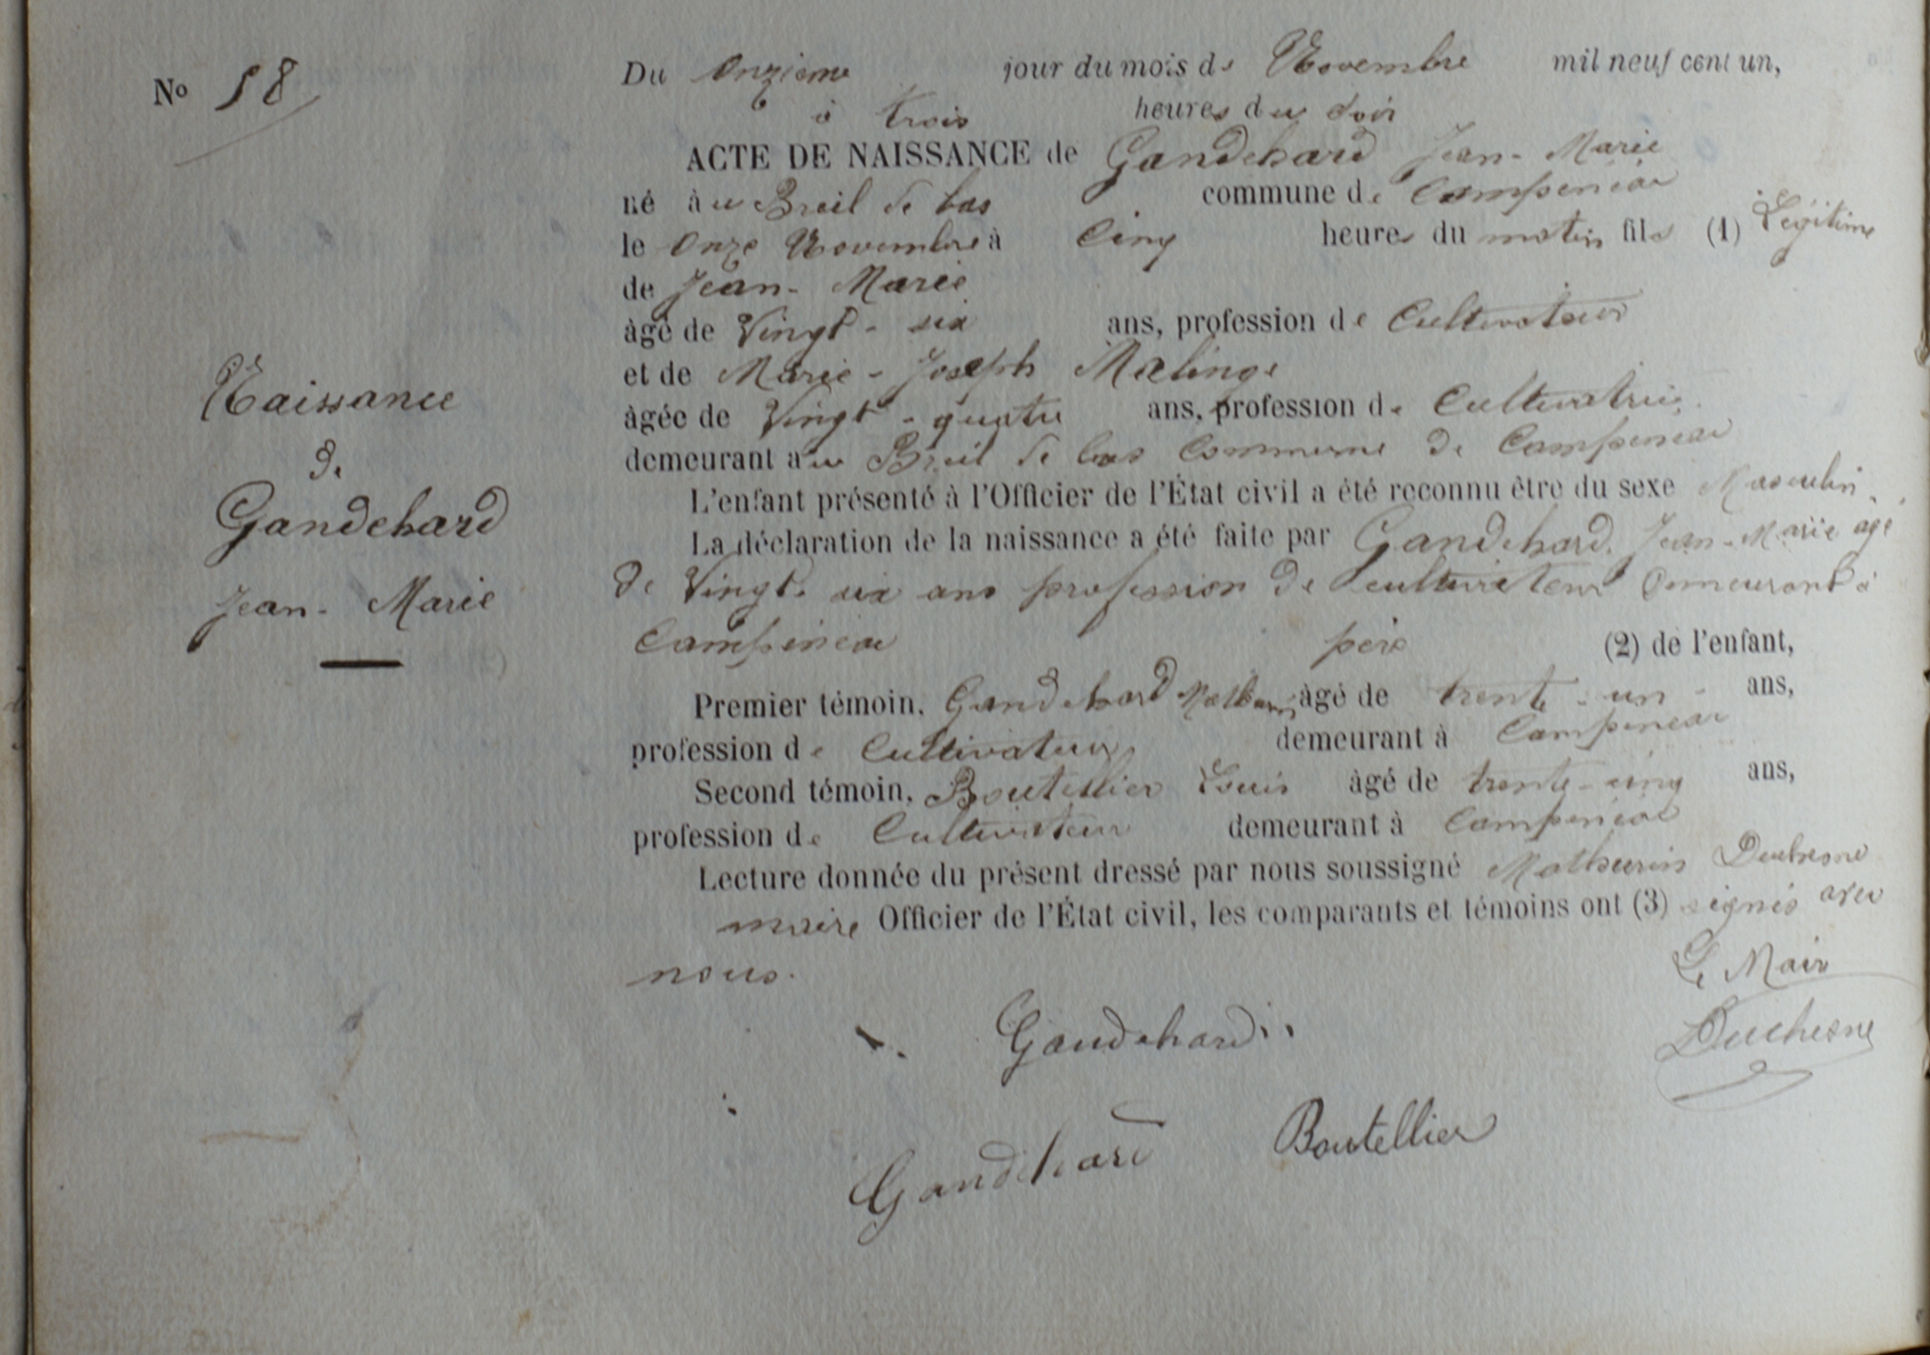 No 58
Naissance
de
Gandehard
Jean-Marie
Du onzieme jour du mois de Novembre mil neuf cent un,
à trois heures du soir
ACTE DE NAISSANCE de Gandehard Jean-Marie
né au Breil de bas commune de Campénéac
le onze Novembre à Cinq heures du matin fils (1) Légitime
de Jean-Marie
âgé de Vingt-six ans, profession de Cultivateur
et de Marie-Joseph Malinge
âgée de Vingt-quatre ans, profession de Cultivatrice
demeurant au Breil de bas Commune de Campénéac
L'enfant présenté à l'Officier de l'État civil a été reconnu être du sexe Masculin.
La déclaration de la naissance a été faite par Gandehard Jean-Marie âgé
de Vingt six ans profession de cultivateur demeurant à
Campénéac père (2) de l'enfant,
Premier témoin, Gandehard Mathurin âgé de trente-un ans,
profession de Cultivateur demeurant à Campénéac
Second témoin, Boutellier Louis âgé de trente-cinq ans,
profession de Cultivateur demeurant à Campénéac
Lecture donnée du présent dressé par nous soussigné Mathurin Duchesne
maire Officier de l'État civil, les comparants et témoins ont (3) signés avec
nous.
Le Maire
Gandehard
Duchesne
Gandehard Boutellier